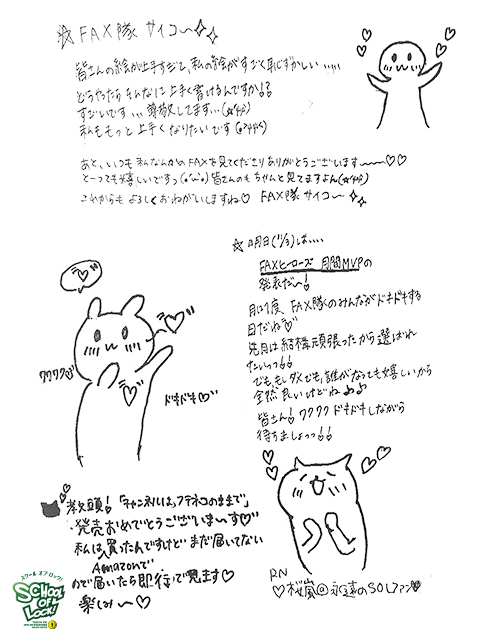 ☆ FAX隊 サイコー
皆さんの絵が上手すぎて、私の絵がすごく恥ずかしい.....
どうやったらそんなに上手く書けるんですか!?
すごいです... 尊敬してます...
私ももっと上手くなりたいです
あと、いつも私なんかのFAXを見てくださりありがとうございます〜〜〜♡♡
とーっても嬉しいですっ(๑'ω'๑) 皆さんのもちゃんと見てますよん
これからもよろしくおねがいしますね♡ FAX隊 サイコー
☆明日(11/3)は....
FAXヒーローズ 月間MVPの
発表だ〜!
月に1度、FAX隊のみんながドキドキする
日だね
先月は結構頑張ったから選ばれ
たいっっ!!
でも、もしダメでも、誰がなっても嬉しいから
全然良いけどね♪♪
皆さん! ワクワク ドキドキしながら
待ちましょっっ!!
ワクワク
ドキドキ♡
教頭!「チャンネルはフテネコのままで」
発売おめでとうございま〜す♡
私は買ったんですけど まだ届いてない
Amazonで
ので届いたら即行で見ます♡
楽しみ〜♡
RN
♡桜嵐@永遠のSOLファン
スクール オブ ロック!
SCHOOL
OF
LOCK!